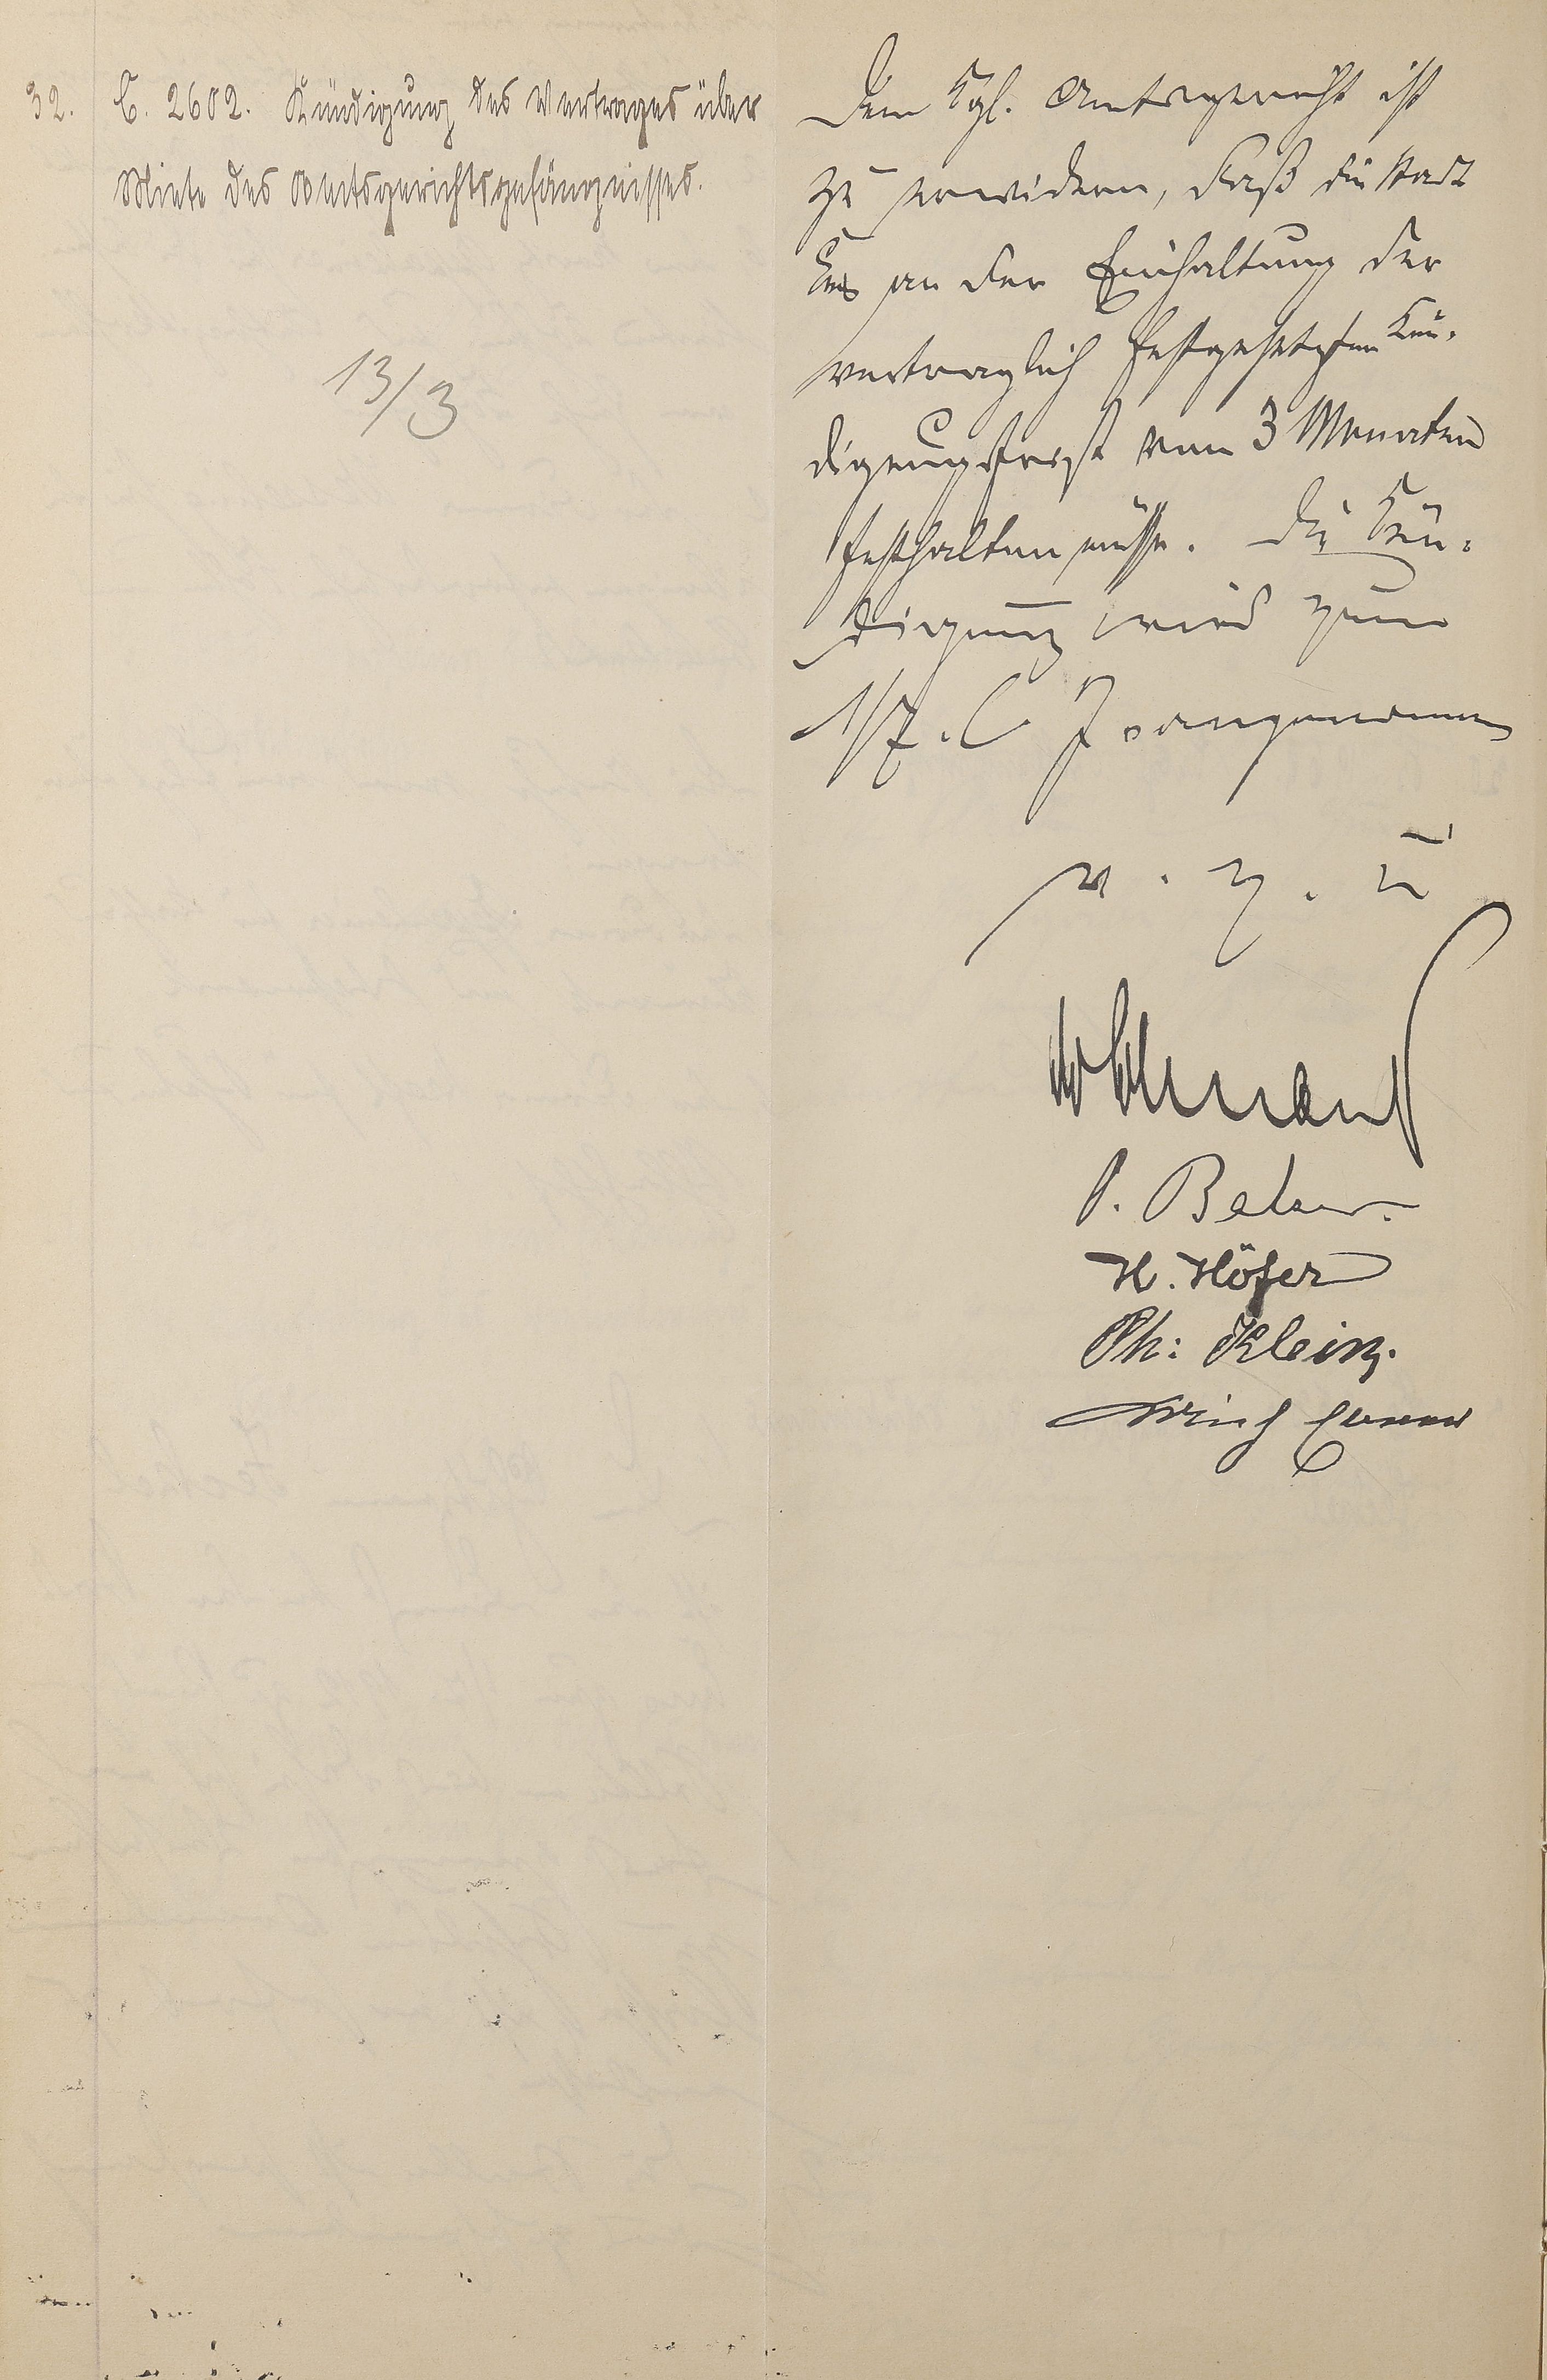 32.
C. 2602. Kündigung des Vertrages über
Miete des Amtsgerichtsgefängnisses.
13/3
Dem Kgl. Amtsgericht ist
zu erwidern, daß die Stadt
an der Einhaltung der
vertraglich festgesetzten Kün-
digungsfrist von 3 Monaten
festhalten müsse. Die Kün-
digung wird zum
1/7. l. J. angenommen
v. g. u
H. Höfer
Ph: Klein.